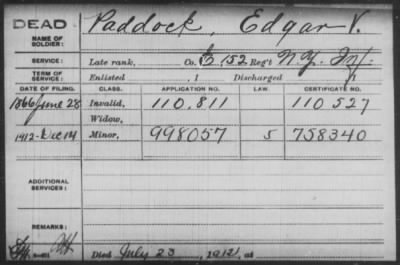 DEAD
NAME OF SOLDIER: Paddock, Edgar V.
SERVICE: Late rank, Co. G 152 Reg't N.Y. Inf.
TERM OF SERVICE: Enlisted , 1 Discharged , 1
DATE OF FILING. CLASS. APPLICATION NO. LAW. CERTIFICATE NO.
1866 June 28 Invalid, 110.811 110 527
Widow,
1912-Dec 14 Minor, 998057 5 758340
ADDITIONAL SERVICES:
REMARKS:
Died July 23, 1912, at